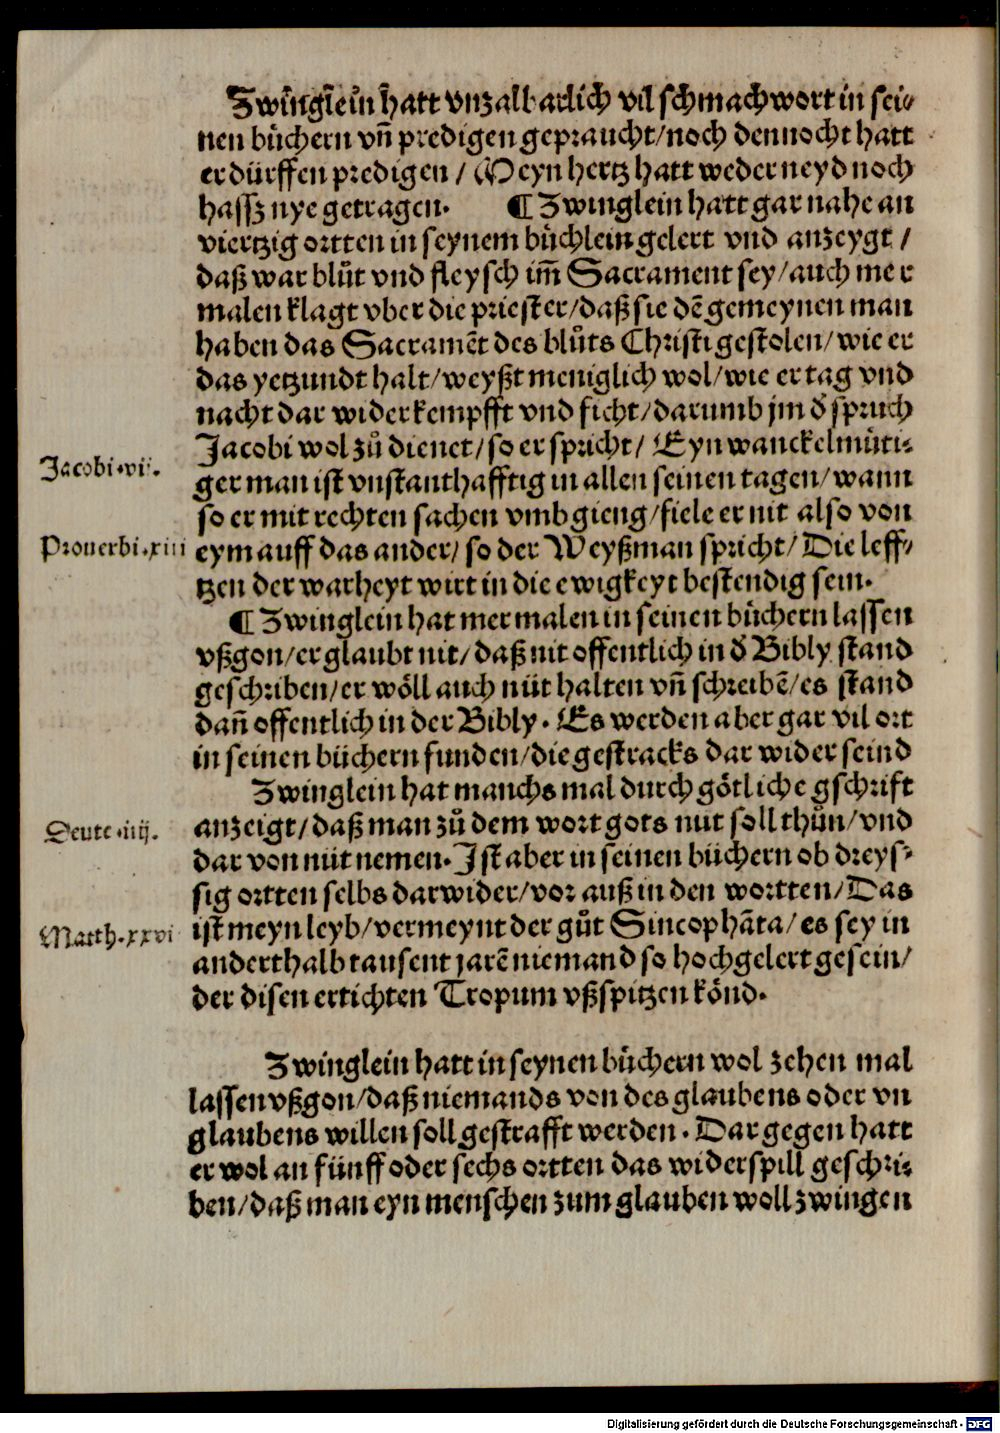 Zwinglein hatt vnzalbarlich vil schmachwort in sei⸗
nen bůchern vñ predigen gepraucht/noch dennocht hatt
er dürffen predigen / Meyn hertz hatt weder neyd noch
hassz nye getragen. ¶ Zwinglein hatt gar nahe an
viertzig ortten in seynem bůchlein gelert vnd anzeygt /
daß war blůt vnd fleysch im̃ Sacrament sey/auch mer
malen klagt vber die priester/daß sie dẽ gemeynen man
haben das Sacramẽt des blůts Christi gestolen/wie er
das yetzundt halt/weyßt meniglich wol/wie er tag vnd
nacht dar wider kempfft vnd ficht/darumb jm d̕ spruch
Jacobi wol zů dienet/so er spricht/ Eyn wanckelmůti⸗
Jacobi.
ger man ist vnstanthafftig in allen seinen tagen/wann
so er mit rechten sachen vmbgieng/fiele er nit also von
Prouerbi.xiii
eym auff das ander/ so der Weyßman spricht/ Die leff⸗
tzen der warheyt wirt in die ewigkeyt bestendig sein.
¶ Zwinglein hat mer malen in seinen bůchern lassen
vßgon/er glaubt nit/daß nit offentlich in d̕ Bibly stand
geschriben/er wöll auch nüt halten vñ schreibẽ/es stand
dañ offentlich in der Bibly. Es werden aber gar vil ort
in seinen büchern funden/die gestracks dar wider seind
Zwinglein hat manchs mal durch götliche gschrift
Deute.iiij.
anzeigt/daß man zů dem wort gots nüt soll thůn/vnd
dar von nüt nemen. Jst aber in seinen büchern ob dreys⸗
sig ortten selbs darwider/vor auß in den wortten/Das
Matth.xxvi
ist meyn leyb/vermeynt der gůt Sincophãta/es sey in
anderthalb tausent jarẽ niemand so hochgelert gesein/
der disen ertichten Tropum vßspitzen kőnd.
Zwinglein hatt in seynen bůchern wol zehen mal
lassen vßgon/daß niemands von des glaubens oder vn
glaubens willen soll gestrafft werden. Dargegen hatt
er wol an fünff oder sechs ortten das widerspill geschri⸗
ben/daß man eyn menschen zum glauben woll zwingen
Digitalisierung gefördert durch die Deutsche Forschungsgemeinschaft - DFG